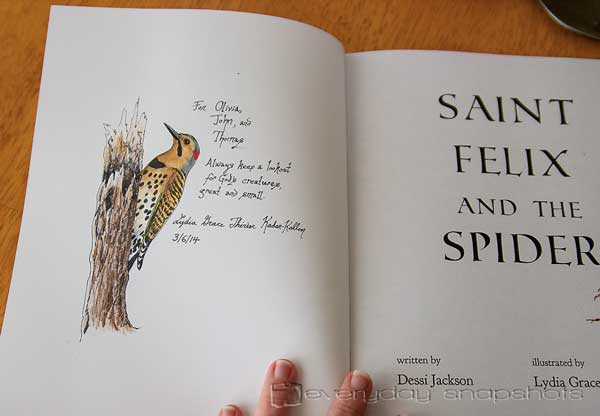 For Olivia,
John, and
Thomas
Always keep a lookout
for God's creatures,
great and small.
Lydia Grace Thérèse Kadar-Kallen
3/6/14
SAINT
FELIX
AND THE
SPIDER
written by
Dessi Jackson
illustrated by
Lydia Grace
everyday snapshots